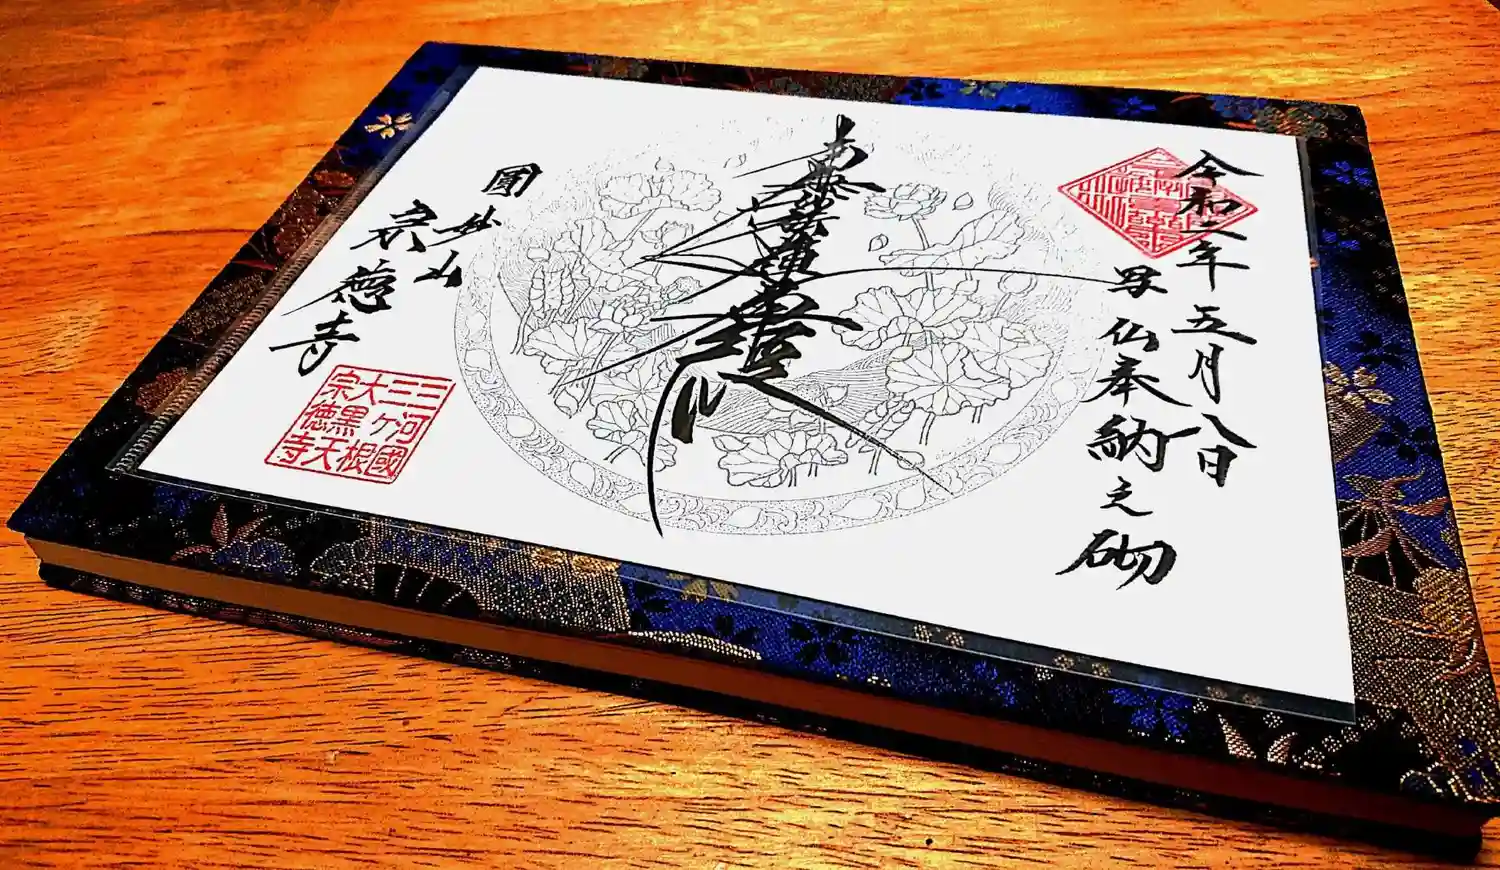 令和二年五月八日
写仏奉納之砌
南無妙法蓮華経
圓妙山
宗徳寺
三河國
三ヶ根
大黒天
宗徳寺